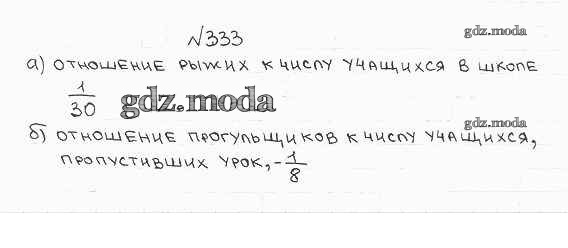 №333
gdz.moda
а) ОТНОШЕНИЕ РЫЖИХ К ЧИСЛУ УЧАЩИХСЯ В ШКОЛЕ
1/30 gdz.moda
gdz.moda
б) ОТНОШЕНИЕ ПРОГУЛЬЩИКОВ К ЧИСЛУ УЧАЩИХСЯ,
ПРОПУСТИВШИХ УРОК, - 1/8